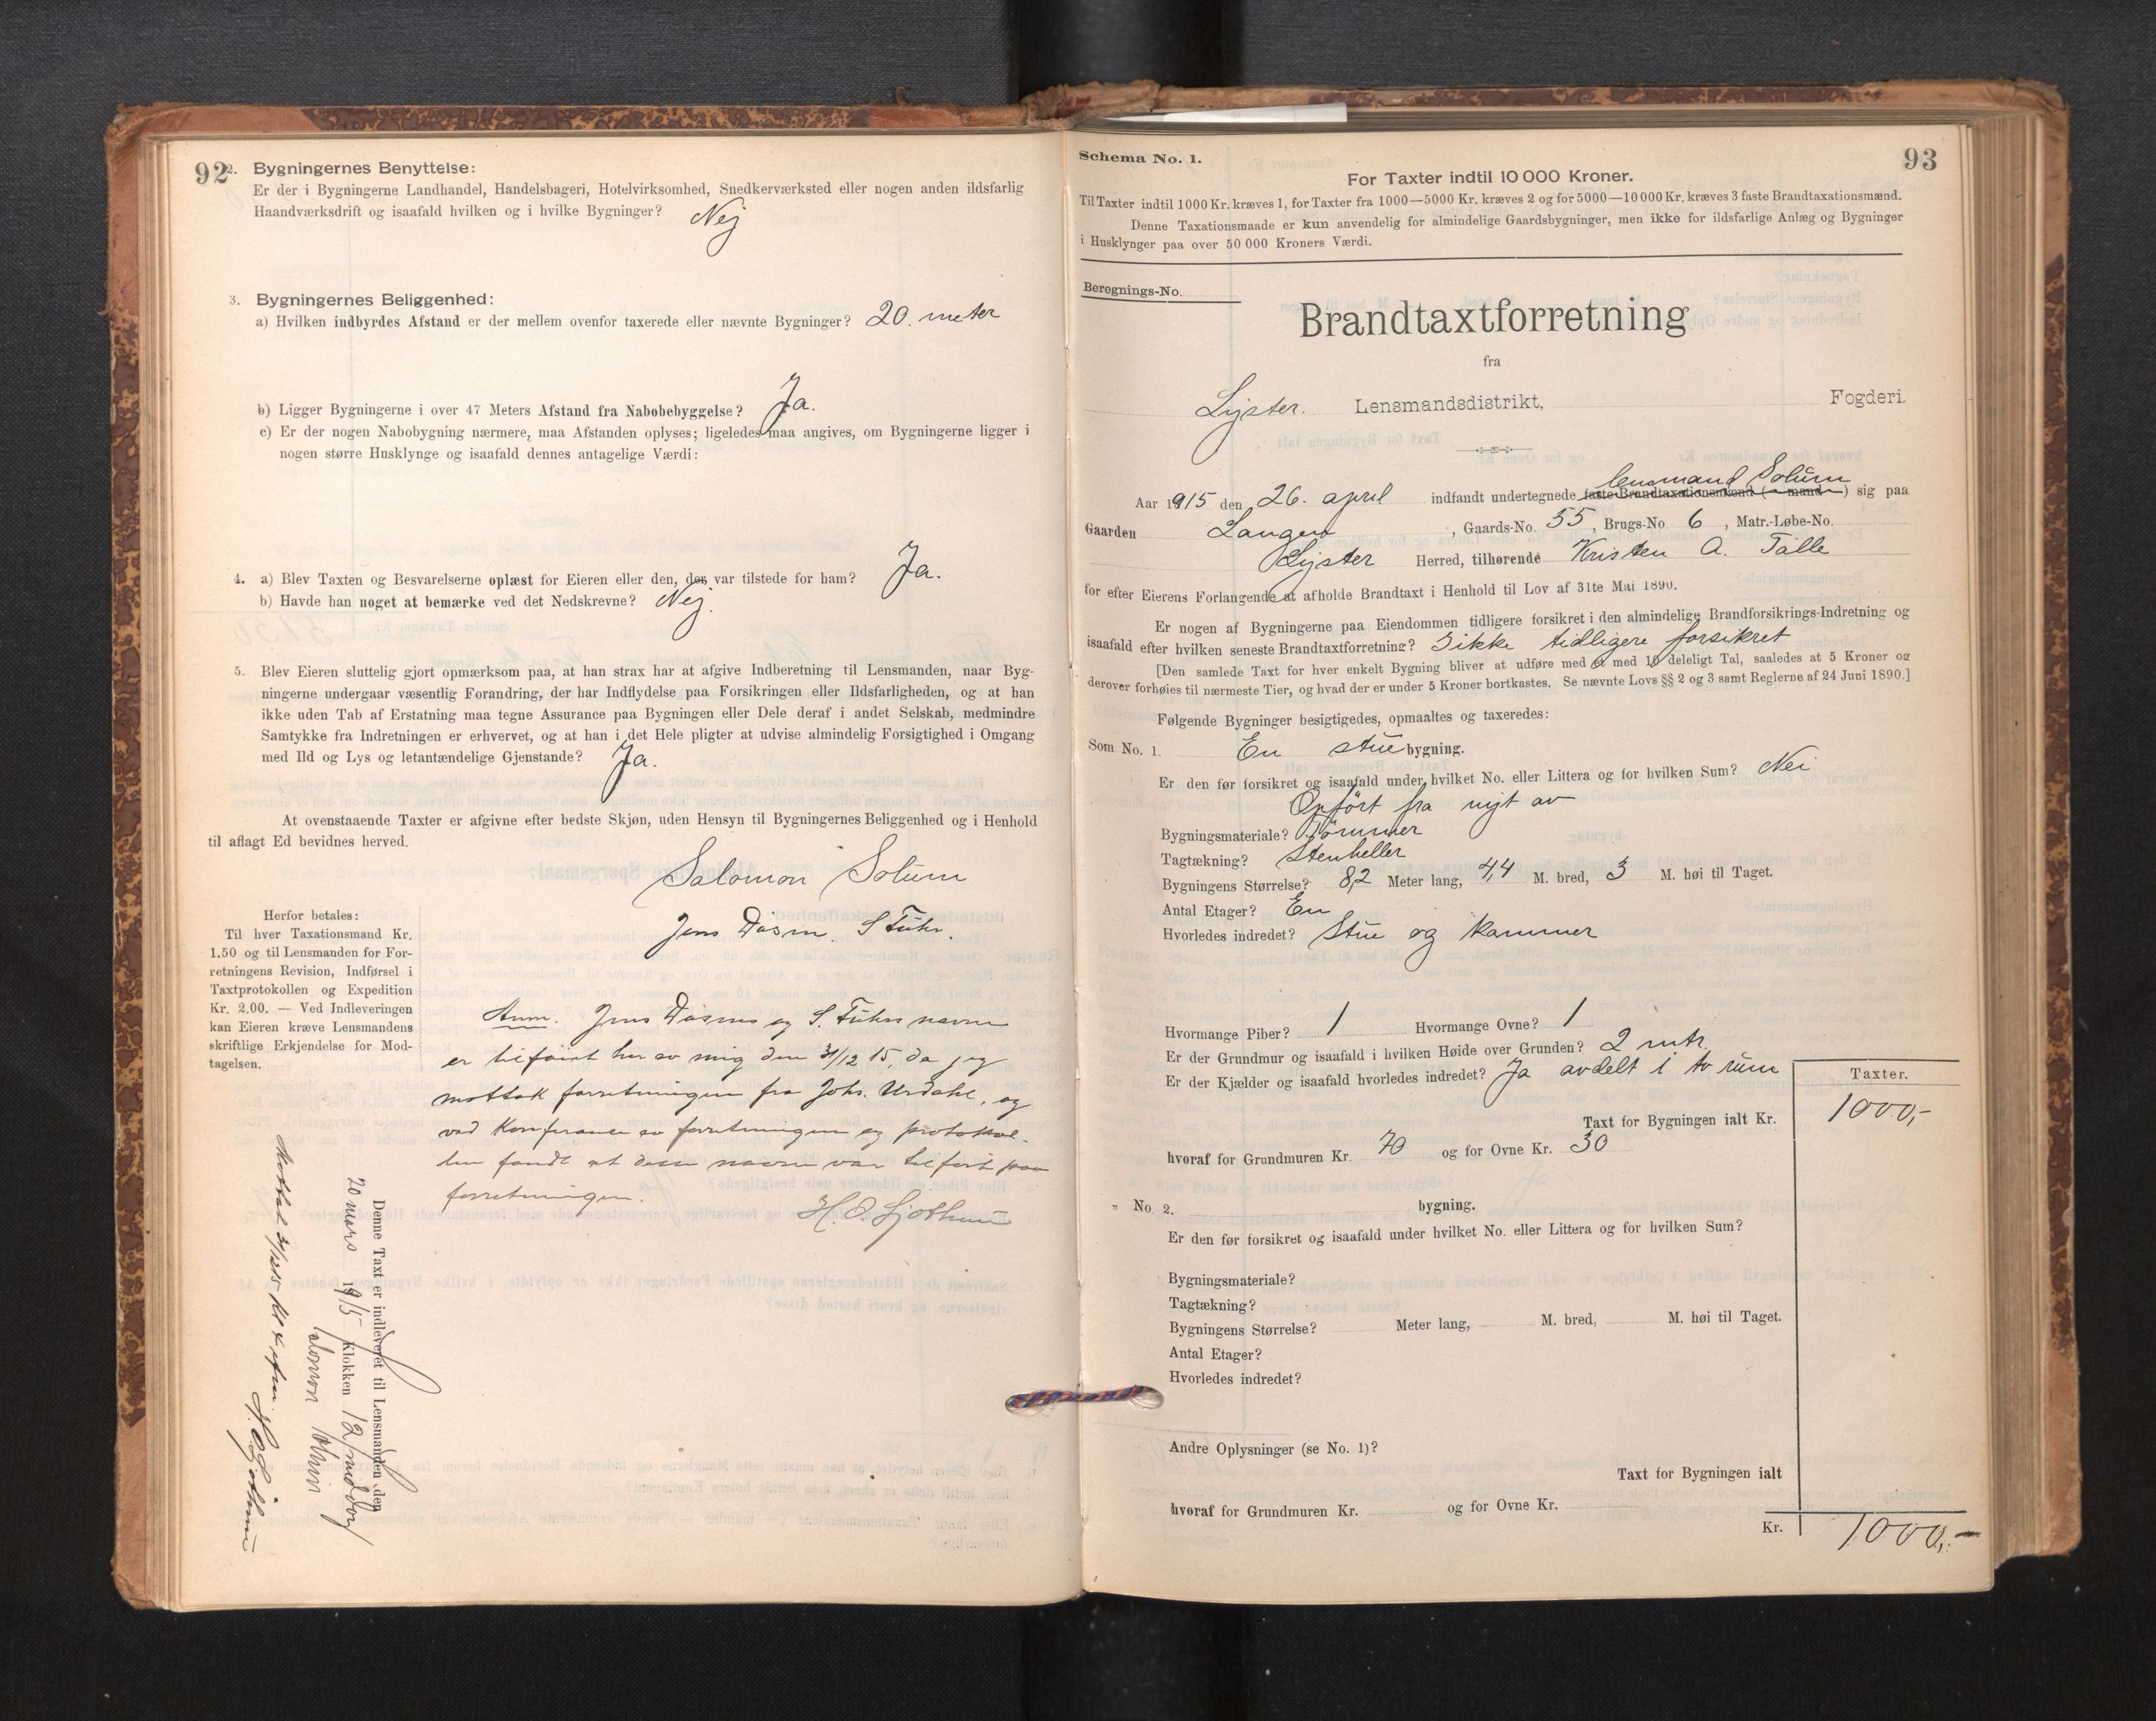 92
2. Bygningernes Benyttelse:
Er der i Bygningerne Landhandel, Handelsbageri, Hotelvirksomhed, Snedkerværksted eller nogen anden ildsfarlig
Haandværksdrift og isaafald hvilken og i hvilke Bygninger? Nej
3. Bygningernes Beliggenhed:
a) Hvilken indbyrdes Afstand er der mellem ovenfor taxerede eller nævnte Bygninger? 20. meter
b) Ligger Bygningerne i over 47 Meters Afstand fra Nabobebyggelse? Ja.
c) Er der nogen Nabobygning nærmere, maa Afstanden oplyses; ligeledes maa angives, om Bygningerne ligger i
nogen større Husklynge og isaafald dennes antagelige Værdi:
4. a) Blev Taxten og Besvarelserne oplæst for Eieren eller den, der var tilstede for ham? Ja.
b) Havde han noget at bemærke ved det Nedskrevne? Nej.
5. Blev Eieren sluttelig gjort opmærksom paa, at han strax har at afgive Indberetning til Lensmanden, naar Byg-
ningerne undergaar væsentlig Forandring, der har Indflydelse paa Forsikringen eller Ildsfarligheden, og at han
ikke uden Tab af Erstatning maa tegne Assurance paa Bygningen eller Dele deraf i andet Selskab, medmindre
Samtykke fra Indretningen er erhvervet, og at han i det Hele pligter at udvise almindelig Forsigtighed i Omgang
med Ild og Lys og letantændelige Gjenstande? Ja.
At ovenstaaende Taxter er afgivne efter bedste Skjøn, uden Hensyn til Bygningernes Beliggenhed og i Henhold
til aflagt Ed bevidnes herved.
Salomon Solum
Jens Døsm. S Fuhr.
Herfor betales:
Til hver Taxationsmand Kr.
1.50 og til Lensmanden for For-
retningens Revision, Indførsel i
Taxtprotokollen og Expedition
Kr. 2.00. — Ved Indleveringen
kan Eieren kræve Lensmandens
skriftlige Erkjendelse for Mod-
tagelsen.
Anm. Jens Døsens og S. Fuhrs navne
er tilføiet her av mig den 31/12 15, da jeg
mottok forretningen fra Johs. Urdahl, og
ved Konferance av forretningen og protokol-
len fandt at disse navne var tilført paa
forretningen.
Denne Taxt er indleveret til Lensmanden den
20 mars 1915 Klokken 12 middag
Salomon Solum
Mottat 31/12 15 Kl 4 efm.
Schema No. 1.
93
For Taxter indtil 10 000 Kroner.
Til Taxter indtil 1000 Kr. kræves 1, for Taxter fra 1000—5000 Kr. kræves 2 og for 5000—10 000 Kr. kræves 3 faste Brandtaxationsmænd.
Denne Taxationsmaade er kun anvendelig for almindelige Gaardsbygninger, men ikke for ildsfarlige Anlæg og Bygninger
i Husklynger paa over 50 000 Kroners Værdi.
Beregnings-No.
Brandtaxtforretning
fra
Lyster. Lensmandsdistrikt, Fogderi.
lensmand Solum
Aar 1915 den 26. april indfandt undertegnede faste Brandtaxationsmænd (— mand —) sig paa
Gaarden Langen, Gaards-No. 55, Brugs-No. 6, Matr.-Løbe-No.
Lyster Herred, tilhørende Kristen A. Talle
for efter Eierens Forlangende at afholde Brandtaxt i Henhold til Lov af 31te Mai 1890.
Er nogen af Bygningerne paa Eiendommen tidligere forsikret i den almindelige Brandforsikrings-Indretning og
isaafald efter hvilken seneste Brandtaxtforretning? Ikke tidligere forsikret
[Den samlede Taxt for hver enkelt Bygning bliver at udføre med et med 10 deleligt Tal, saaledes at 5 Kroner og
derover forhøies til nærmeste Tier, og hvad der er under 5 Kroner bortkastes. Se nævnte Lovs §§ 2 og 3 samt Reglerne af 24 Juni 1890.]
Følgende Bygninger besigtigedes, opmaaltes og taxeredes:
Som No. 1. En stue bygning.
Er den før forsikret og isaafald under hvilket No. eller Littera og for hvilken Sum? Nei
Opført fra nyt av
Bygningsmateriale? Tømmer
Tagtækning? Stenheller
Bygningens Størrelse? 8,2 Meter lang, 4,4 M. bred, 3 M. høi til Taget.
Antal Etager? En
Hvorledes indredet? Stue og kammer
Hvormange Piber? 1 Hvormange Ovne? 1
Er der Grundmur og isaafald i hvilken Høide over Grunden? 2 mtr.
Er der Kjælder og isaafald hvorledes indredet? Ja avdelt i to rum
Taxter.
Taxt for Bygningen ialt Kr. 1000,-
hvoraf for Grundmuren Kr. 70 og for Ovne Kr. 30
" No. 2. bygning.
Er den før forsikret og isaafald under hvilket No. eller Littera og for hvilken Sum?
Bygningsmateriale?
Tagtækning?
Bygningens Størrelse? Meter lang, M. bred, M. høi til Taget.
Antal Etager?
Hvorledes indredet?
Andre Oplysninger (se No. 1)?
Taxt for Bygningen ialt
hvoraf for Grundmuren Kr. og for Ovne Kr.
Kr. 1000,-